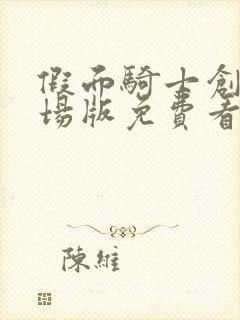 假面騎士創
場版免費看
陳維